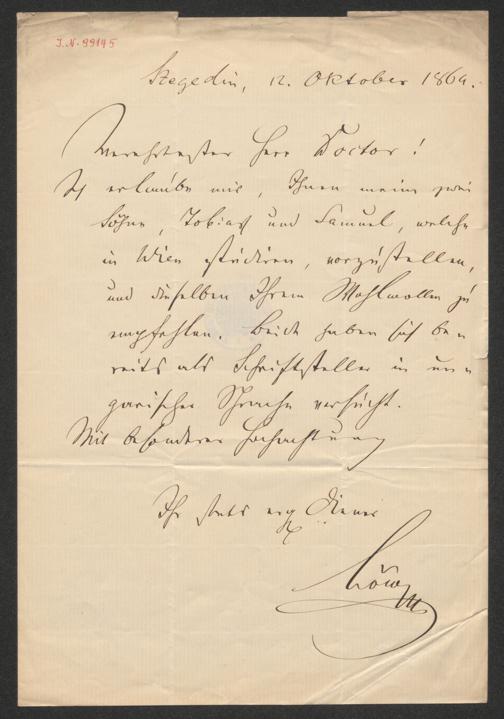 I.N. 99145
Szegedin, 12. Oktober 1864.
Verehrtester Herr Doctor!
Ich erlaube mir, Ihnen meine zwei
Söhne, Tobias und Samuel, welche
in Wien studiren, vorzustellen,
und dieselben Ihrem Wohlwollen zu
empfehlen. Beide haben sich be
reits als Schriftsteller in un
garischer Sprache versucht.
Mit besonderer Hochachtung
Ihr stets erg Diener
Löw